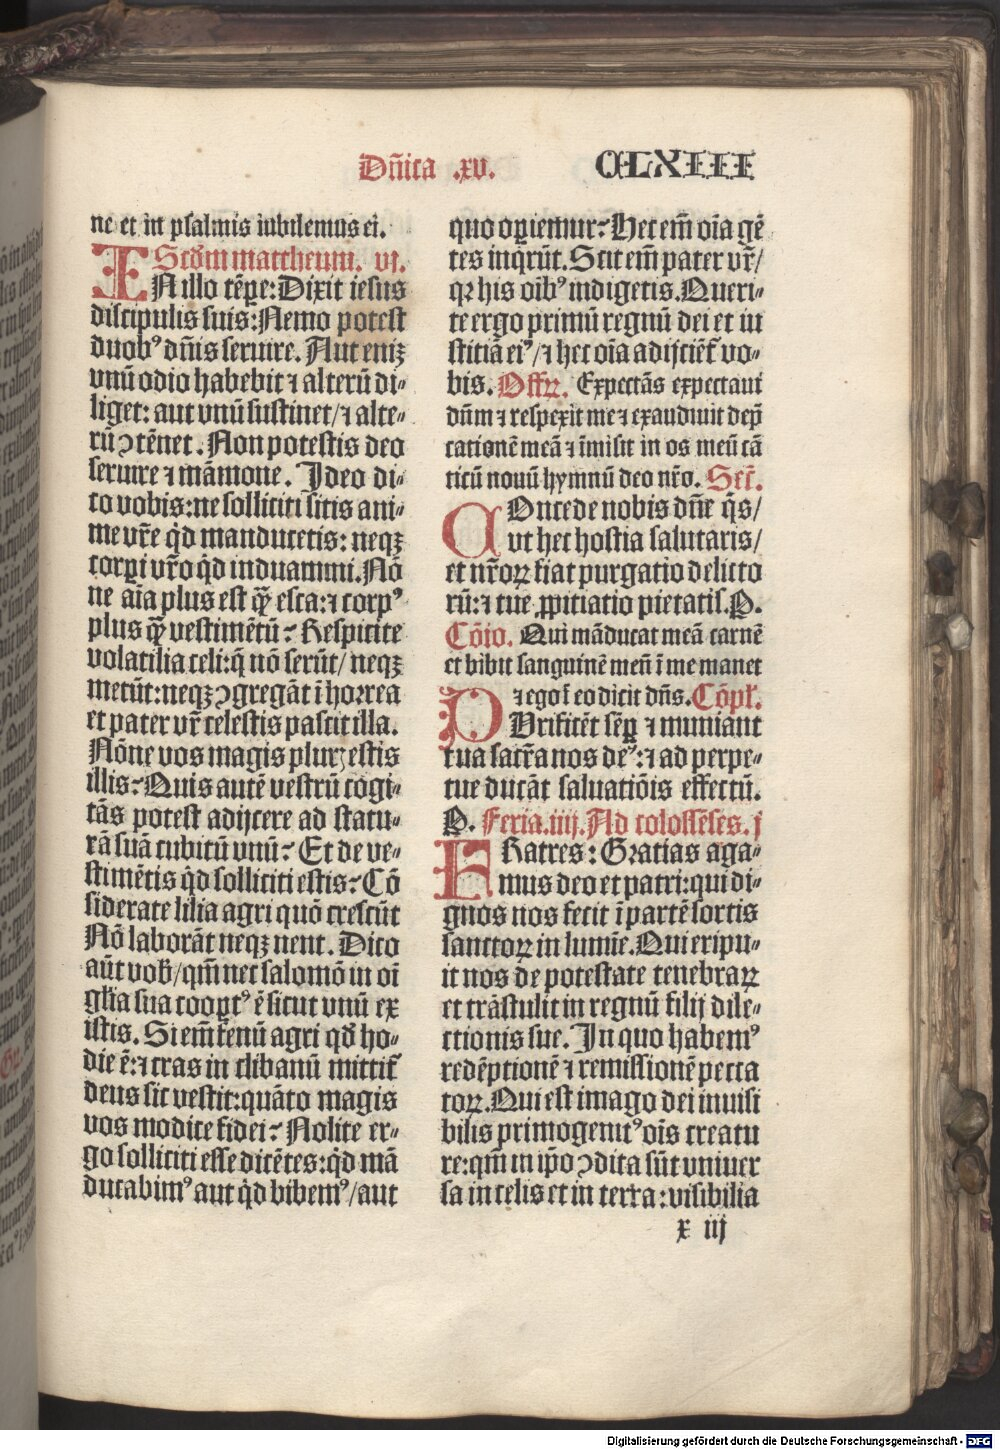 Dn̄ica .xv.
CLXIIII
ne et in psalmis iubilemus ei.
Scd̄m mattheum. vi.
IN illo tēp̲e: Dixit iesus
discipulis suis: Nemo potest
duobꝰ dn̄is seruire. Aut eniꝫ
vnū odio habebit ⁊ alterū di⸗
liget: aut vnū sustinet/ ⁊ alte⸗
rū ↄtēnet. Non potestis deo
seruire ⁊ māmone. Ideo di⸗
co vobis: ne solliciti sitis ani⸗
me vr̄e qd̄ manducetis: neqꝫ
corꝑi vr̄o qd̄ induamini. Nō
ne aīa plus est qꝫ̄ esca: ⁊ corpꝰ
plus qꝫ̄ vestimētū? Respicite
volatilia celi: q̄ nō serūt/ neqꝫ
metūt: neqꝫ ↄgregāt ī horrea
et pater vr̄ celestis pascit illa.
Nōne vos magis plurꝫ estis
illis? Quis autē vestrū cogi⸗
tās potest adijcere ad statu⸗
rā suā cubitū vnū? Et de ve⸗
stimētis qd̄ solliciti estis? Cō
siderate lilia agri quō crescūt
Nō laborāt neqꝫ nent. Dico
aūt vob̄/ qm̄ nec salomō in oī
glīa sua cooptꝰ ē sicut vnū ex
istis. Si em̄ fenū agri qd̄ ho⸗
die ē: ⁊ cras in clibanū mittit᷑
deus sic vestit: quāto magis
vos modice fidei? Nolite er⸗
go solliciti esse dicētes: qd̄ mā
ducabimꝰ aut qd̄ bibemꝰ/ aut
quo oꝑiemur? Hec em̄ oīa gē
tes inqrūt. Scit em̄ pater vr̄/
qꝛ his oībꝰ indigetis. Queri⸗
te ergo primū regnū dei et iu
sticiā eiꝰ/ ⁊ hec oīa adijciēt᷑ vo⸗
bis. Offꝝ. Expectās expectaui
dūm ⁊ respexit me ⁊ exaudiuit dep̄
cationē meā ⁊ īmisit in os meū cā
ticū nouū hymnū deo nr̄o. Secr̄.
COncede nobis dn̄e qs̄/
vt hec hostia salutaris/
et nr̄oꝝ fiat purgatio delicto
rū: ⁊ tue ꝓpitiatio pietatis. P.
Cōio. Qui māducat meā carnē
et bibit sanguinē meū ī me manet
⁊ ego ī eo dicit dn̄s. Cōpl̄.
PUrificēt sēꝑ ⁊ muniant
tua sacr̄a nos deꝰ: ⁊ ad perpe⸗
tue ducāt saluatiōis effectū.
P. Feria.iiij. Ad colossēses. j
FRatres: Gratias aga⸗
mus deo et patri: qui di⸗
gnos nos fecit ī partē sortis
sanctoꝝ in lumīe. Qui eripu⸗
it nos de potestate tenebraꝝ
et trāstulit in regnū filij dile⸗
ctionis sue. In quo habemꝰ
redēptionē ⁊ remissionē pecca
toꝝ. Qui est imago dei inuisi
bilis primogenitꝰ oīs creatu
re: qm̄ in ip̄o ↄdita sūt vniuer
sa in celis et in terra: visibilia
x iij
Digitalisierung gefördert durch die Deutsche Forschungsgemeinschaft - DFG